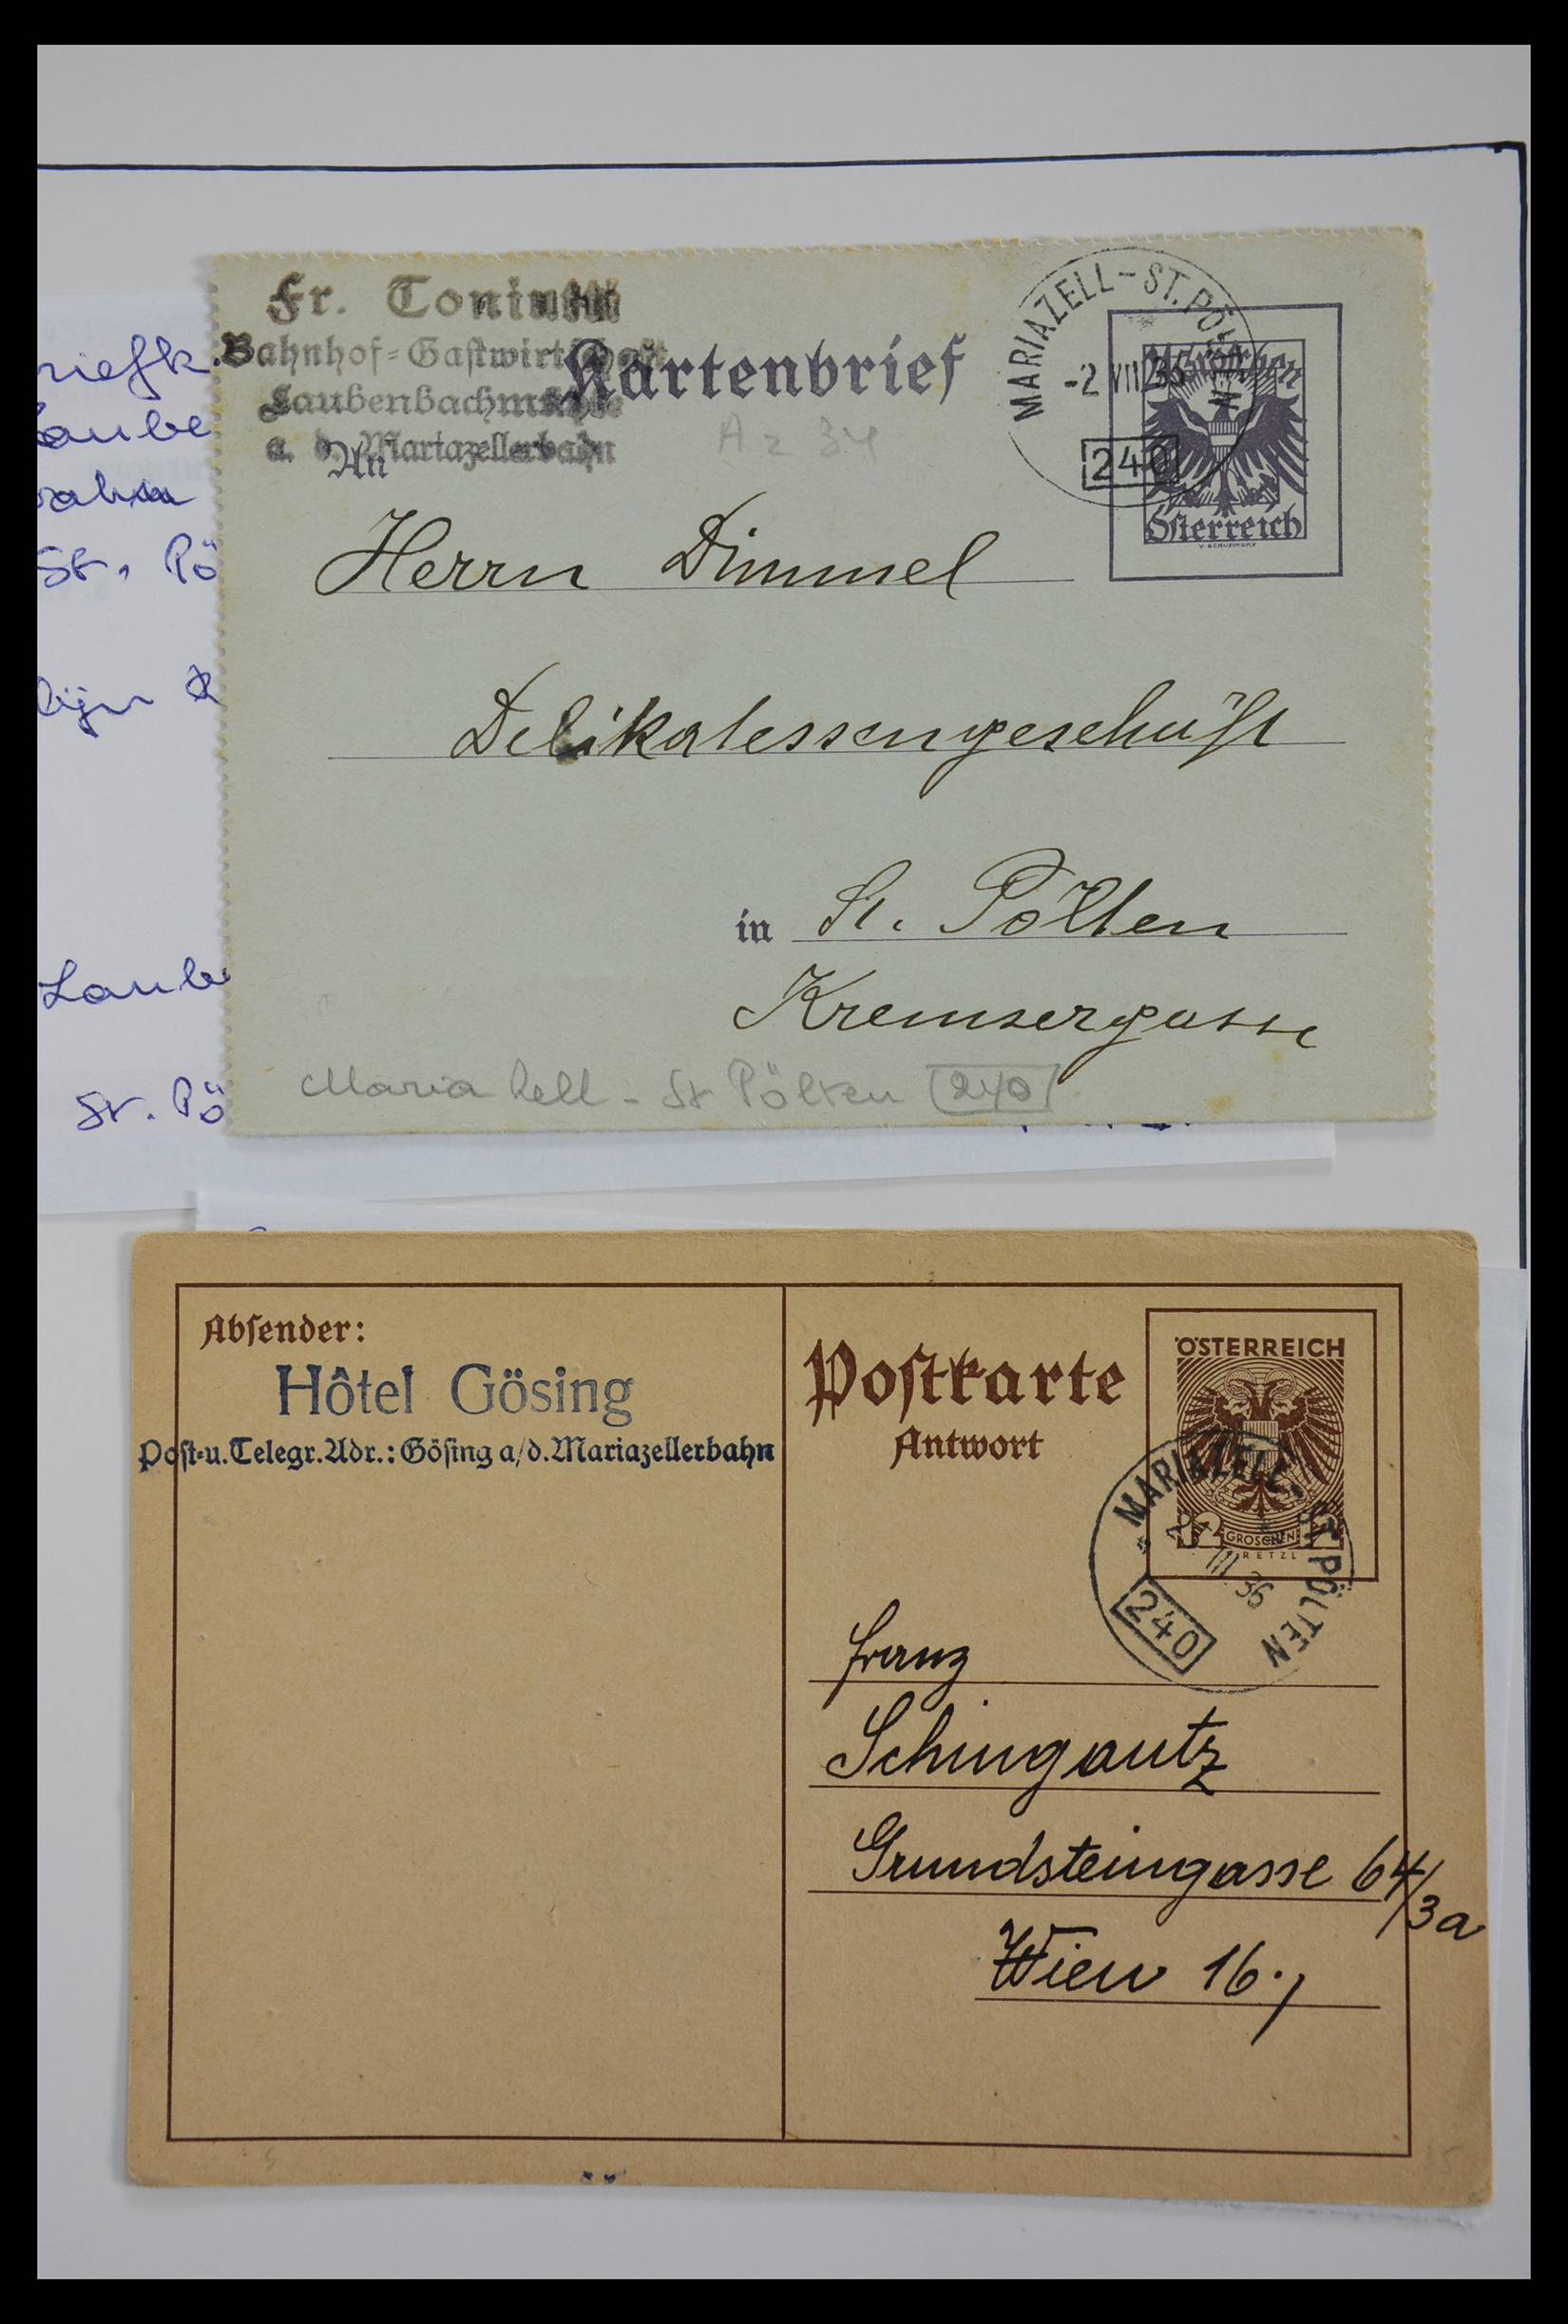 Fr. Toni
Bahnhof-Gastwirtschaft
Laubenbachmühle
a. d. Mariazellerbahn
Kartenbrief
Az 34
An
MARIAZELL-ST. PÖLTEN
-2 VII 36
240
24 Groschen
Österreich
Herrn Dimmel
Delikatessengeschäft
in St. Pölten
Kremsergasse
Maria Zell - St Pölten 240
riefk.
Laube
bahn
St. Pö
Laube
St. Pö
Absender:
Hôtel Gösing
Post-u. Telegr. Adr.: Gösing a/d. Mariazellerbahn
Postkarte
Antwort
ÖSTERREICH
GROSCHEN
RETZL
MARIAZELL, ST. PÖLTEN
III 36
240
Franz
Schingautz
Grundsteingasse 64/3a
Wien 16.,